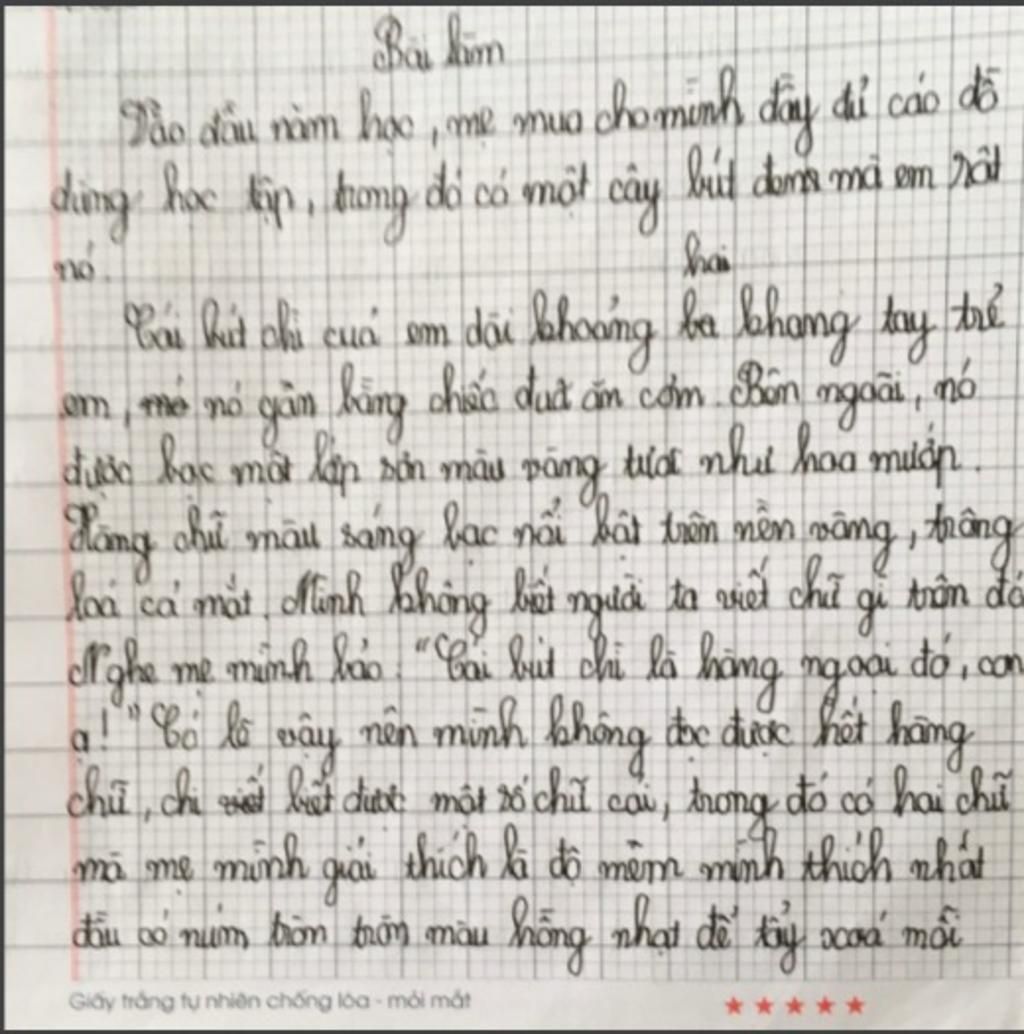 Bài làm
Vào đầu năm học, mẹ mua cho mình đầy đủ các đồ
dùng học tập, trong đó có một cây bút mà em rất
nó.
hai
Cái bút chì của em dài khoảng ba khang tay trẻ
em, nó gần bằng chiếc đũa ăn cơm. Bên ngoài, nó
được bọc một lớp sơn màu vàng tươi như hoa mướp.
Hàng chữ màu sáng bạc nổi bật trên nền vàng, trông
loá cả mắt. Mình không biết người ta viết chữ gì trên đó
Nghe mẹ mình bảo. "Cái bút chì là hàng ngoại đó, con
ạ!" Có lẽ vậy nên mình không đọc được hết hàng
chữ, chỉ biết được một số chữ cái, trong đó có hai chữ
mà mẹ mình giải thích là độ mềm mình thích nhất
đầu có núm tròn tròn màu hồng nhạt để tẩy xoá mỗi
Giấy trắng tự nhiên chống lóa - mỏi mắt